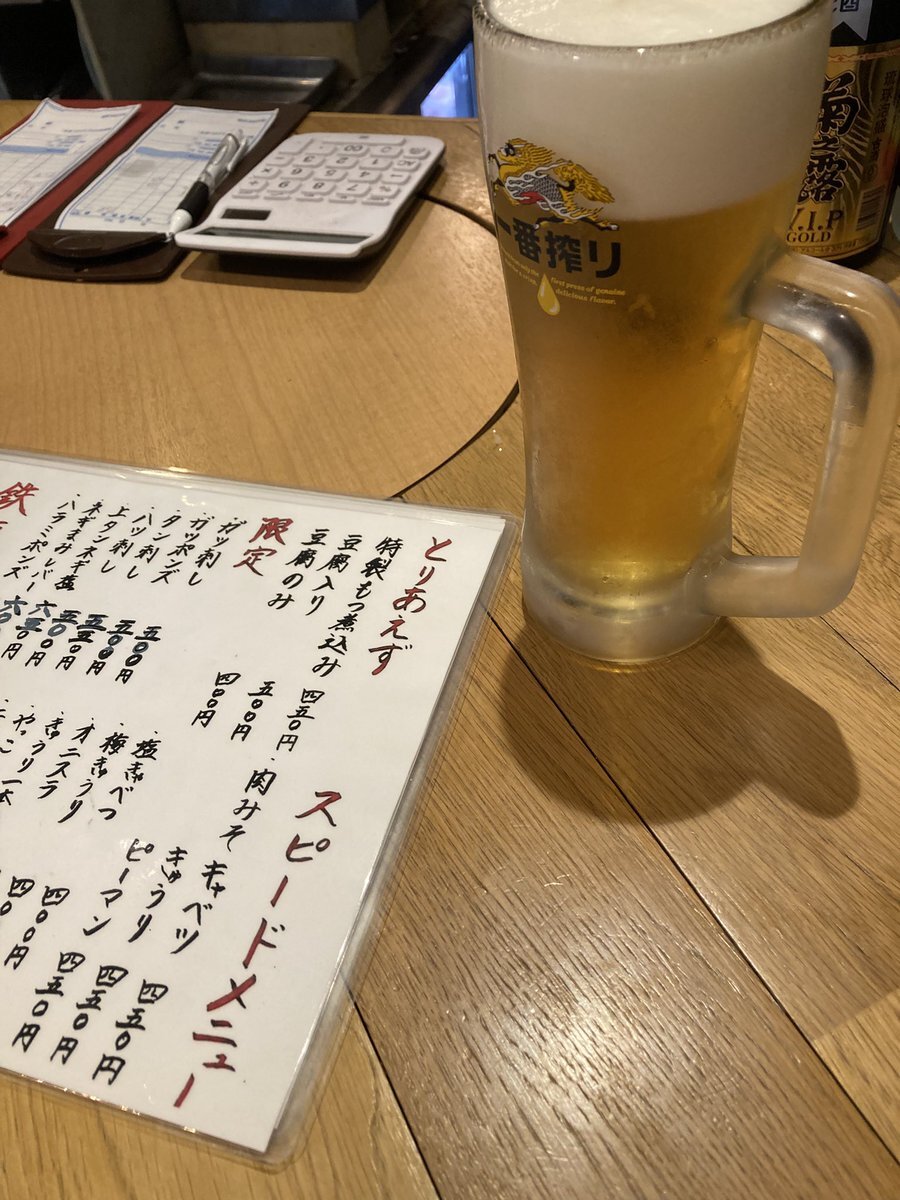 一番搾り
first press of genuine
delicious flavor.
菊之露
V.I.P
GOLD
とりあえず
特製もつ煮込み 四五〇円
豆腐入り 五〇〇円
豆腐のみ 四〇〇円
限定
・ガツ刺し 五〇〇円
・ガツポンズ 五〇〇円
・タン刺し 五五〇円
・ハツ刺し 五〇〇円
・上タンネギ塩
・ネギまみレバー
・ハラミポンズ
鉄
スピードメニュー
・肉みそ キャベツ 四五〇円
きゅうり 四五〇円
ピーマン 四五〇円
・塩きゃべつ 四〇〇円
・梅きゅうり
・オニスラ
・きゅうり一本
・やっこ
00